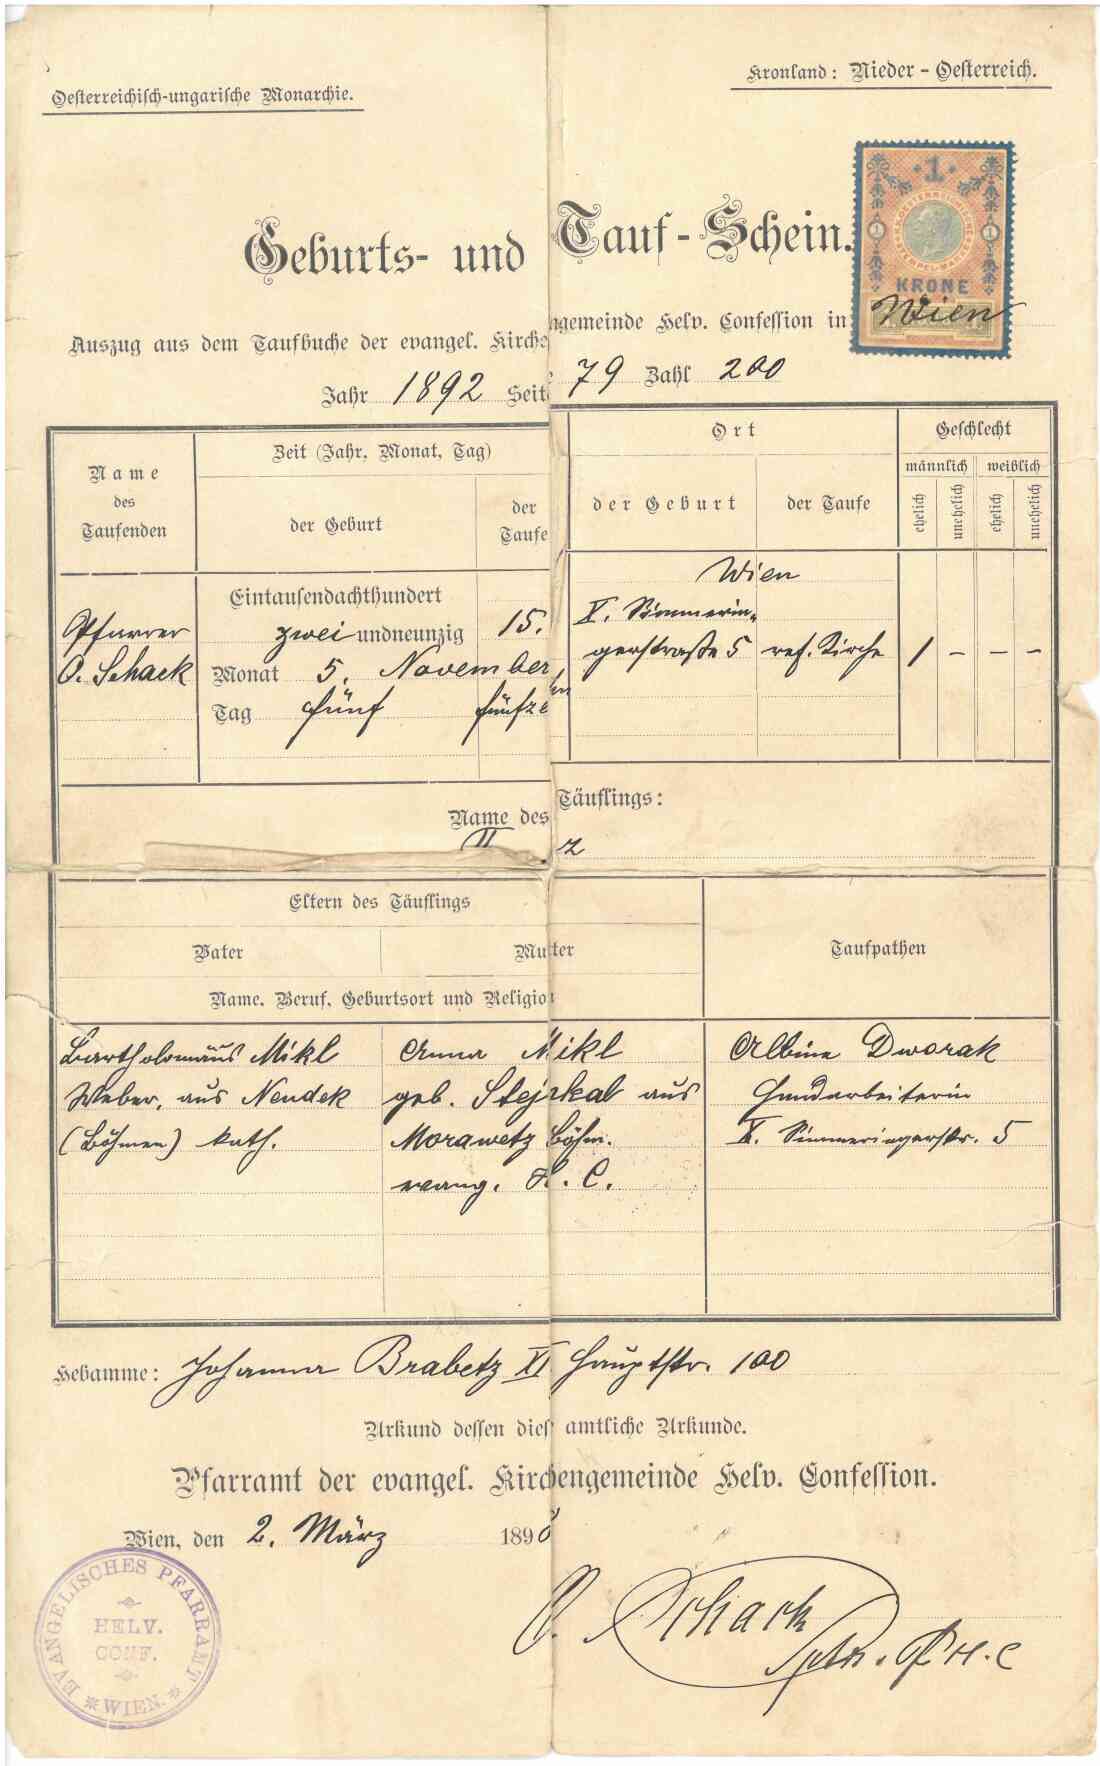 Oesterreichisch-ungarische Monarchie.
Kronland: Nieder-Oesterreich.
1
KRONE
Geburts- und Tauf-Schein.
Auszug aus dem Taufbuche der evangel. Kirchengemeinde Helv. Confession in Wien
Jahr 1892 Seite 79 Zahl 200
Name des Taufenden
Zeit (Jahr, Monat, Tag)
der Geburt
der Taufe
Ort
der Geburt
der Taufe
Geschlecht
männlich
weiblich
ehelich
unehelich
ehelich
unehelich
Pfarrer
O. Schack
Eintausendachthundert
zwei undneunzig 15.
Monat 5. November
Tag fünf fünfzehn
Wien
X. Simmerin-
gerstraße 5 ref. Kirche
1 – – –
Name des Täuflings:
Eltern des Täuflings
Vater
Mutter
Taufpathen
Name, Beruf, Geburtsort und Religion
Bartholomäus Mikl
Weber, aus Neudek
(Böhmen) kath.
Anna Mikl
geb. Stejskal aus
Morawetz Böhm.
evang. H. C.
Albine Dworak
Handarbeiterin
X. Simmeringerstr. 5
Hebamme: Johanna Brabetz XI Hauptstr. 100
Urkund dessen diese amtliche Urkunde.
Pfarramt der evangel. Kirchengemeinde Helv. Confession.
Wien, den 2. März 189
EVANGELISCHES PFARRAMT
HELV.
CONF.
WIEN.
O. Schack